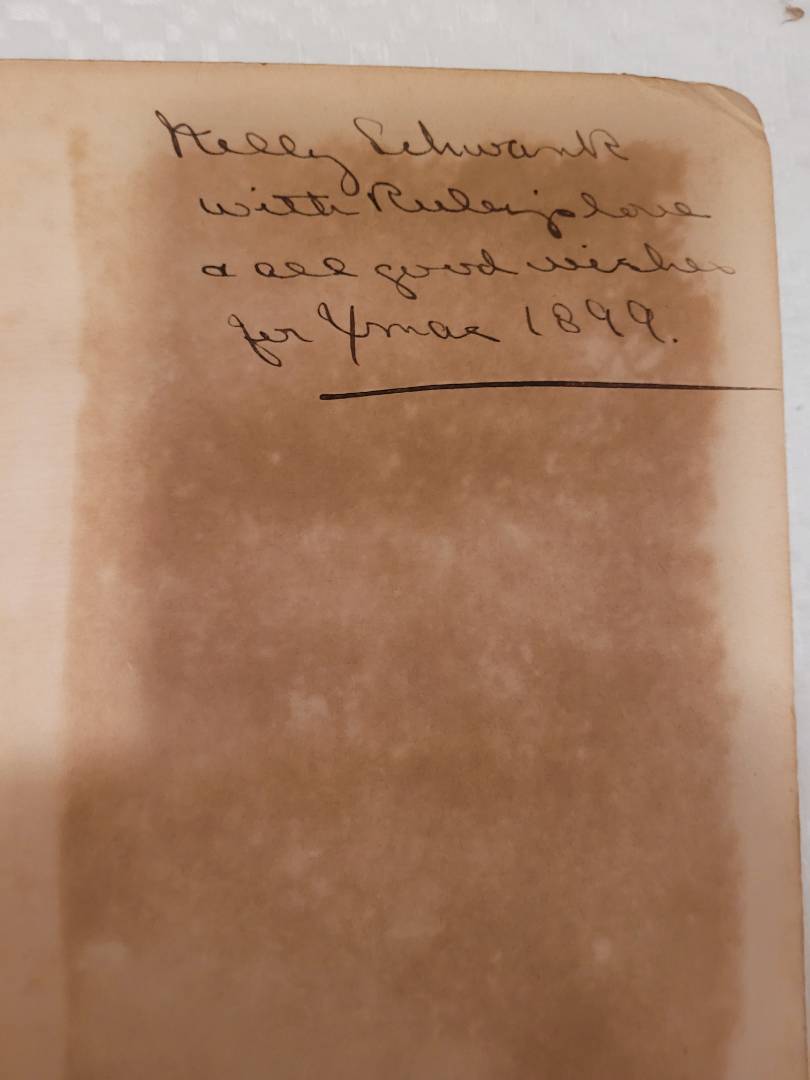 Nelly Schwank
with love
& all good wishes
for Xmas 1899.